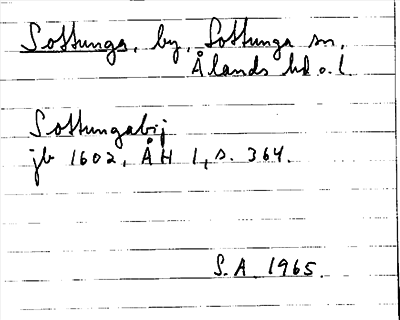 Sottunga, by, Sottunga sn,
Ålands hd o. l.
Sottungabÿ
jb 1602, ÅH 1, s. 364.
S. A. 1965.